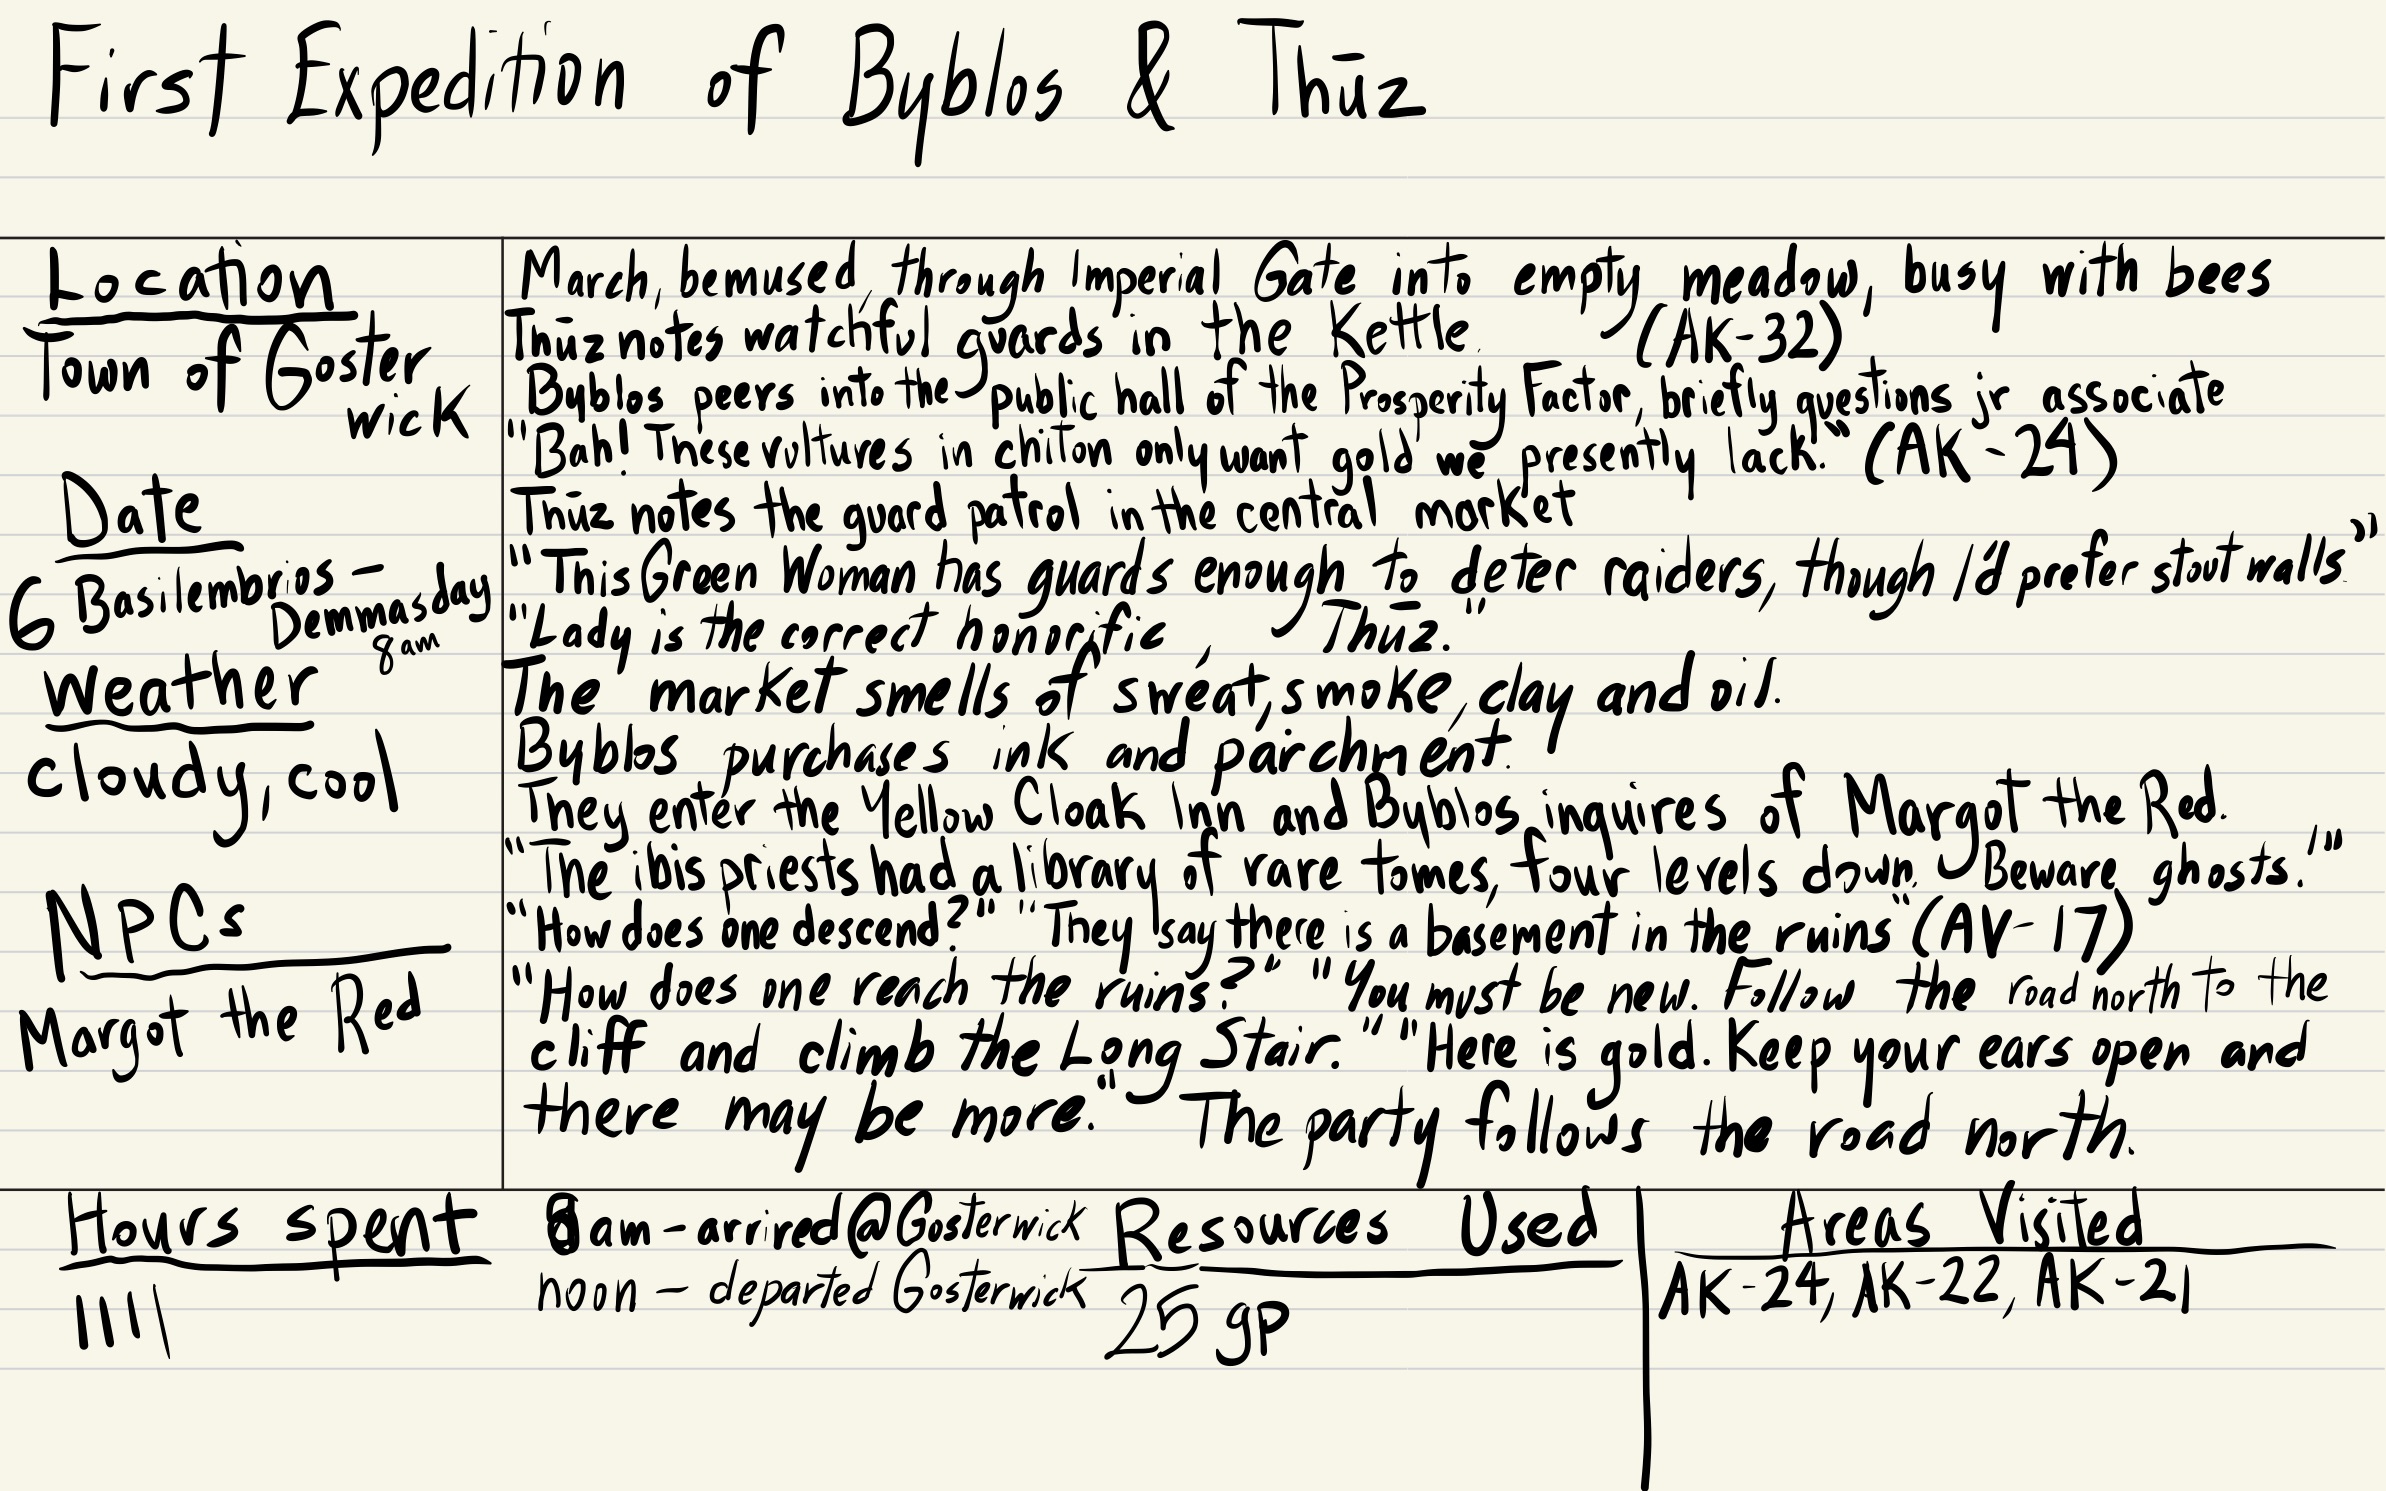 First Expedition of Byblos & Thūz
Location
Town of Goster
wick
Date
6 Basilembrios –
Demmasday
8am
Weather
cloudy, cool
NPCs
Margot the Red
March, bemused, through Imperial Gate into empty meadow, busy with bees
Thūz notes watchful guards in the Kettle. (AK-32)
Byblos peers into the public hall of the Prosperity Factor, briefly questions jr associate
"Bah! These vultures in chiton only want gold we presently lack." (AK-24)
Thūz notes the guard patrol in the central market
"This Green Woman has guards enough to deter raiders, though I'd prefer stout walls."
"Lady is the correct honorific, Thūz."
The market smells of sweat, smoke, clay and oil.
Byblos purchases ink and parchment.
They enter the Yellow Cloak Inn and Byblos inquires of Margot the Red.
"The ibis priests had a library of rare tomes, four levels down. Beware ghosts.'"
"How does one descend?" "They say there is a basement in the ruins" (AV-17)
"How does one reach the ruins?" "You must be new. Follow the road north to the
cliff and climb the Long Stair." "Here is gold. Keep your ears open and
there may be more." The party follows the road north.
Hours spent
1111
8am – arrived @ Gosterwick
noon – departed Gosterwick
Resources Used
25 gp
Areas Visited
AK-24, AK-22, AK-21